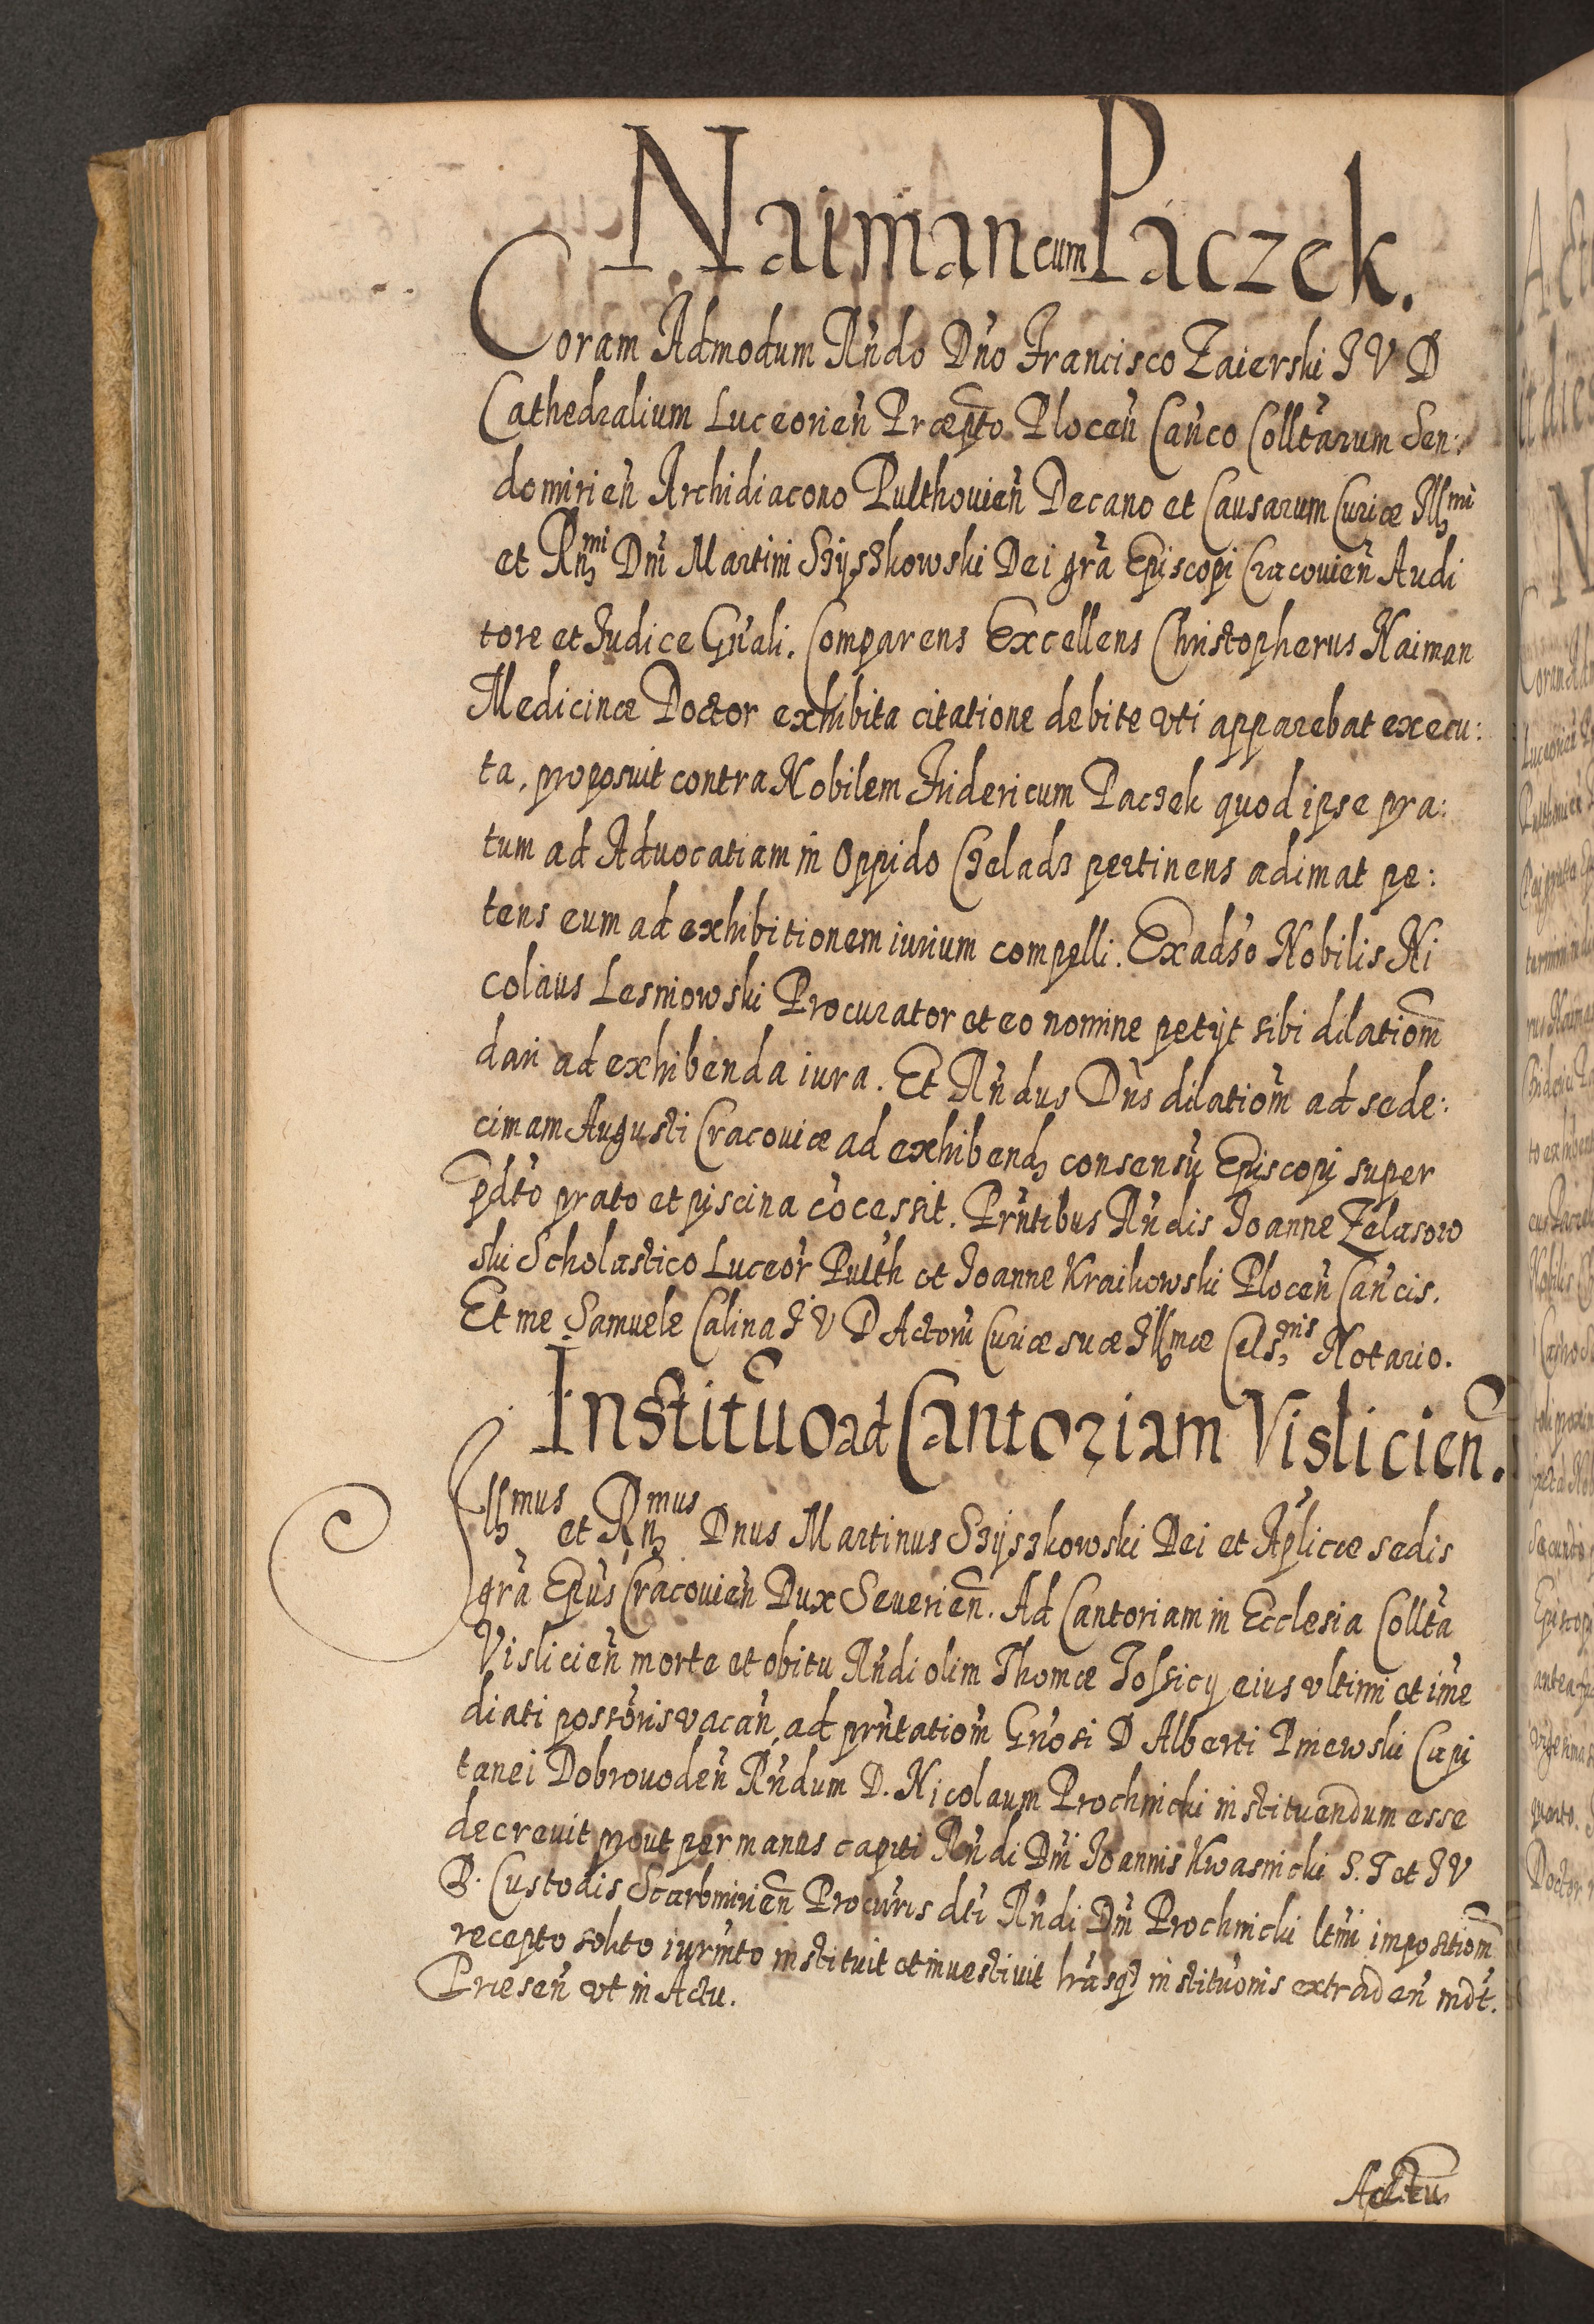 Naiman cum Paczek.
Coram Admodum Rndo Dno Francisco Zaierski I V D
Cathedralium Luceorien Præpto Plocen Canco Colltarum Sen:
domirien Archidiacono Pulthovien Decano et Causarum Curiæ Illmi
et Rnmi Dni Martini Szyszkowski Dei gra Episcopi Cracovien Audi
tore et Iudice Gnali. Comparens Excellens Christopherus Naiman
Medicinæ Doctor exhibita citatione debite vti apparebat execu:
ta, proposuit contra Nobilem Fridericum Paczek quod ipse pra:
tum ad Aduocatiam in Oppido Czeladz pertinens adimat pe:
tens eum ad exhibitionem iurium compelli. Ex adso Nobilis Ni
colaus Lesniowski Procurator et eo nomine petijt sibi dilatiom
dari ad exhibenda iura. Et Rndus Dns dilatiom ad sede:
cimam Augusti Cracoviæ ad exhibend consensu Episcopi super
pdto prato et piscina cocessit. Prntibus Rndis Ioanne Zelasow
ski Scholastico Luceor Pulth et Ioanne Kraikowski Plocen Cancis.
Et me Samuele Calina I V D Actoru Curiæ suæ Illmæ Celsnis Notario.
Institutio ad Cantoriam Vislicien.
Illmus et Rnmus Dnus Martinus Szyszkowski Dei et Aplicæ sedis
gra Epus Cracovien Dux Severien. Ad Cantoriam in Ecclesia Collta
Vislicien morte et obitu Rndi olim Thomæ Tossicy eius vltimi et ime
diati possoris vacan, ad prntatiom Gnosi D Alberti Pniewski Capi
tanei Dobrovoden Rndum D. Nicolaum Prochnicki instituendum esse
decrevit prout per manus capiti Rndi Dni Ioannis Kwasnicki S. T et I V
D. Custodis Scarbmirien Procuris dti Rndi Dni Prochnicki ltmi impositiom
recepto solito iurmto instituit et investivit lrasq institutionis extraden mdt.
Præsen vt in Actu.